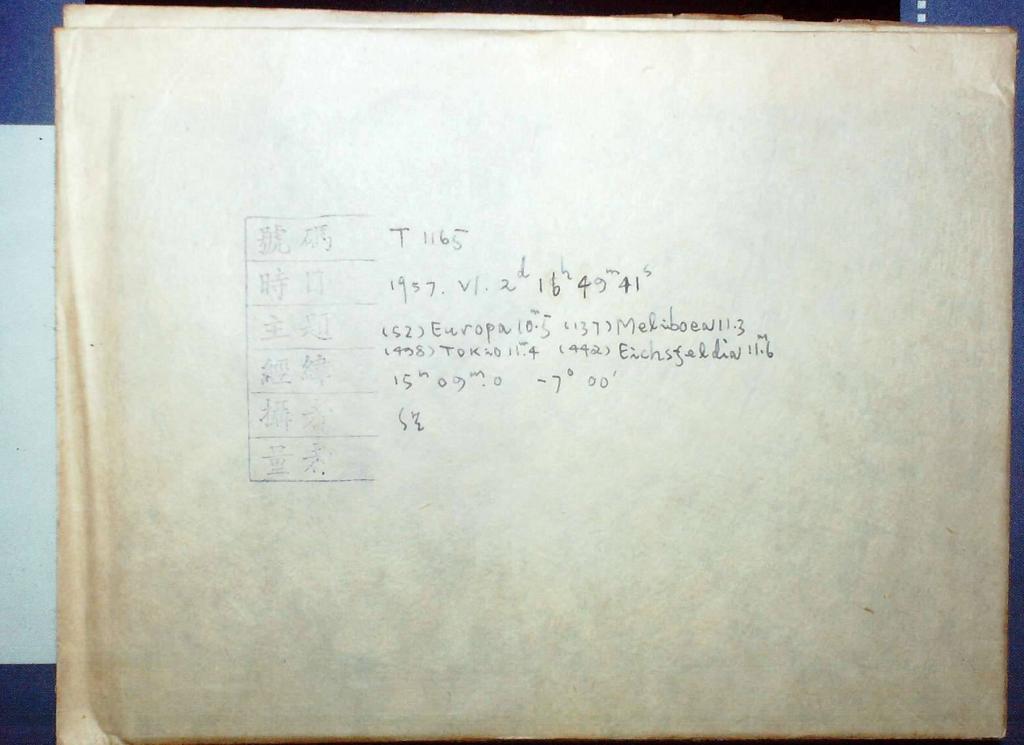 號碼 T 1165
時日 1957. VI. 2ᵈ 16ʰ 49ᵐ 41ˢ
主題 (52) Europa 10ᵐ.5 (137) Meliboea 11.3
(498) TOKIO 11ᵐ.4 (442) Eichsfeldia 11ᵐ.6
經緯 15ʰ 09ᵐ.0 -7° 00'
攝者
量者